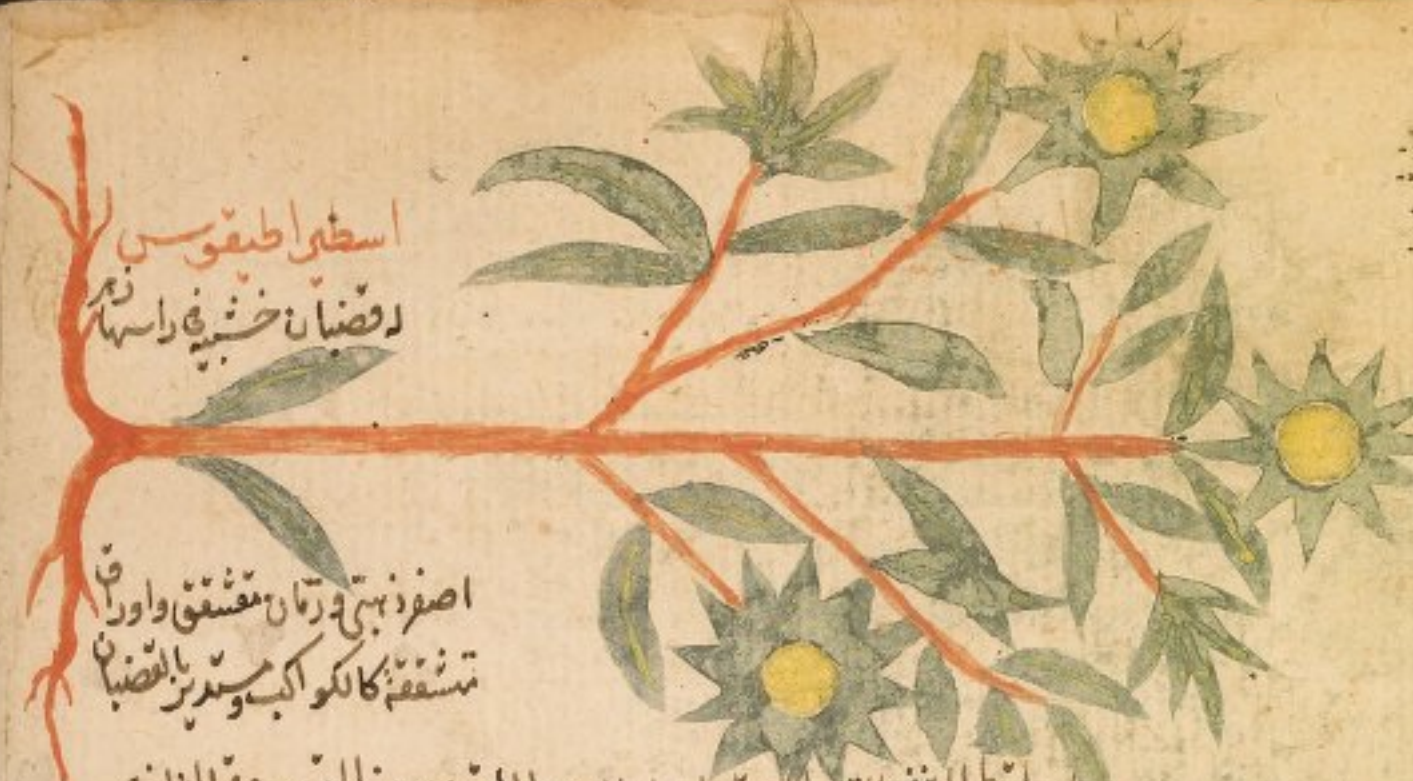 اسطيراطيقوس
له قضبان خشبية في راسها زهر
اصفر ذهبي ورمان متشقق واوراق
متشققة كالكواكب ومستدير بالقضبان